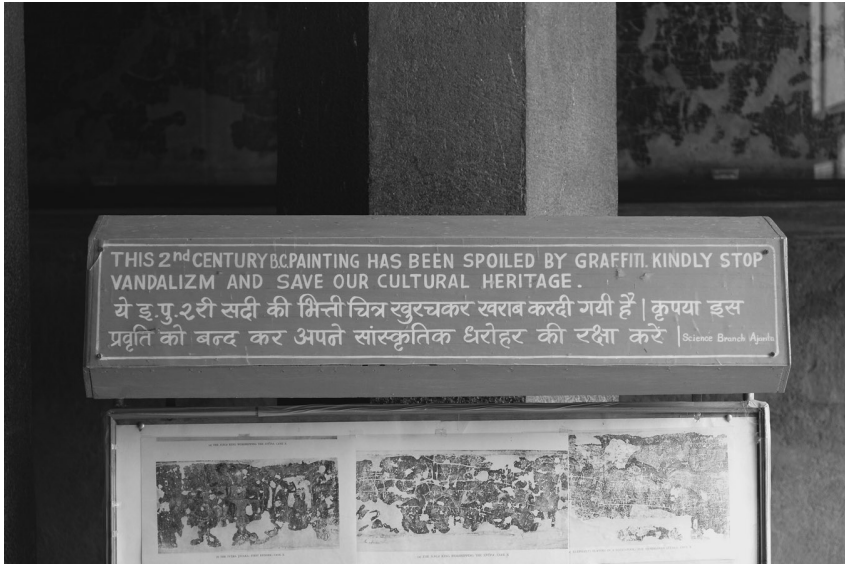 THIS 2nd CENTURY B.C. PAINTING HAS BEEN SPOILED BY GRAFFITI. KINDLY STOP
VANDALIZM AND SAVE OUR CULTURAL HERITAGE.
ये इ.पु.२री सदी की भित्ती चित्र खुरचकर खराब करदी गयी हैं | कृपया इस
प्रवृति को बन्द कर अपने सांस्कृतिक धरोहर की रक्षा करें |
Science Branch Ajanta